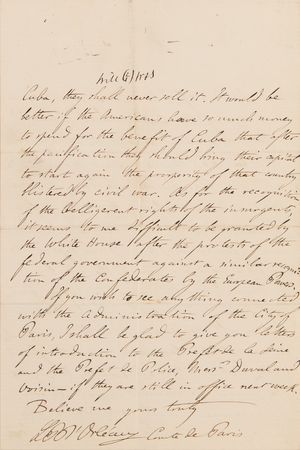 Cuba, they shall never sell it. It would be
better if the Americans have so much money
to spend for the benefit of Cuba that after
the pacification they should bring their capital
to start again the prosperity of that country
blistered by civil war. As for the recognition
of the belligerent rights of the insurgents,
it seems to me difficult to be granted by
the White House after the protests of the
federal government against a similar recogni
tion of the Confederates by the European Powers.
If you wish to see anything connected
with the Administration of the City of
Paris, I shall be glad to give you letters
of introduction to the Prefet de la Seine
and the Prefet de Police, Mess. Duval and
Voisin — if they are still in office next week.
Believe me yours truly
d'Orléans Comte de Paris